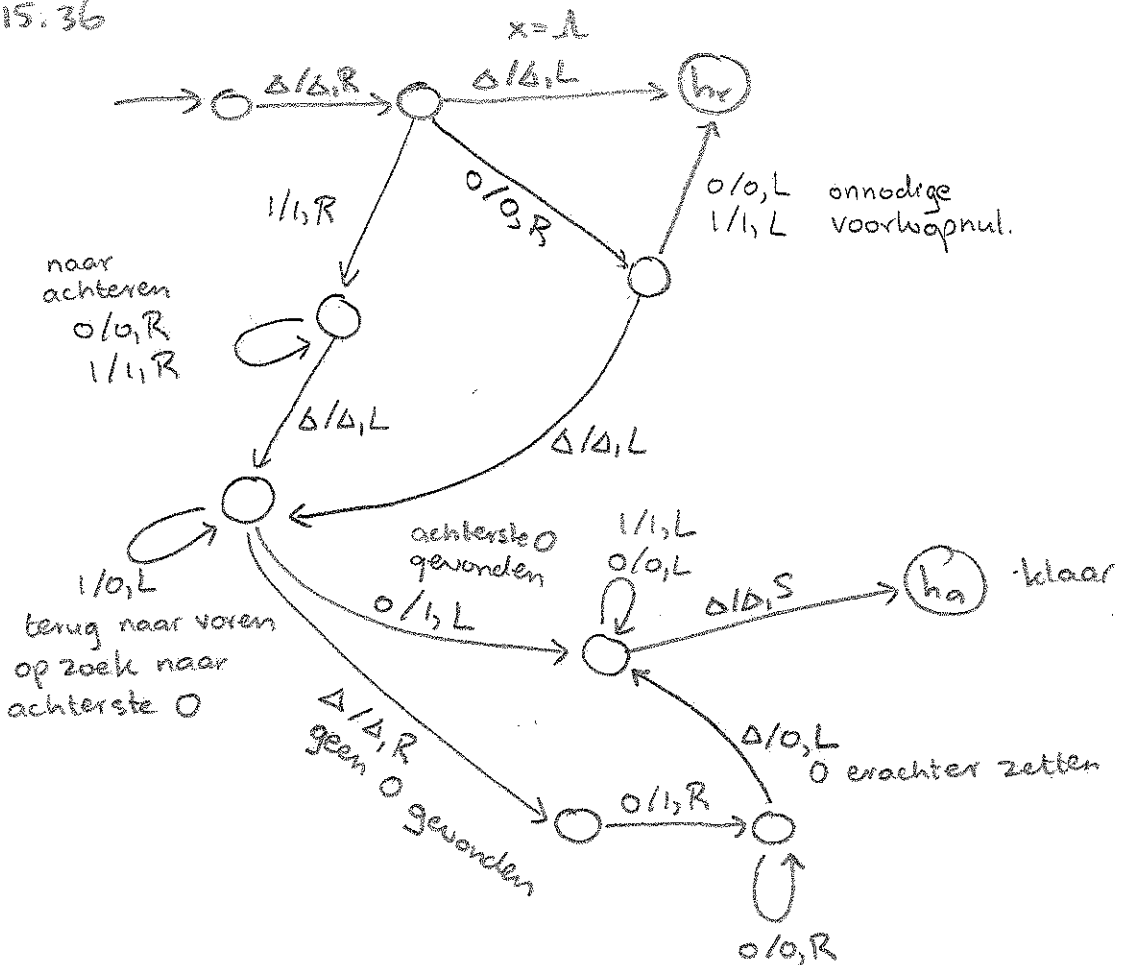 15:36
x=Λ
Δ/Δ,R
Δ/Δ,L
hr
1/1,R
0/0,R
0/0,L onnodige
1/1,L voorloopnul.
naar
achteren
0/0,R
1/1,R
Δ/Δ,L
Δ/Δ,L
1/0,L
terug naar voren
op zoek naar
achterste 0
achterste 0
gevonden
0/1,L
1/1,L
0/0,L
Δ/Δ,S
ha
klaar
Δ/Δ,R
geen 0 gevonden
0/1,R
Δ/0,L
0 erachter zetten
0/0,R